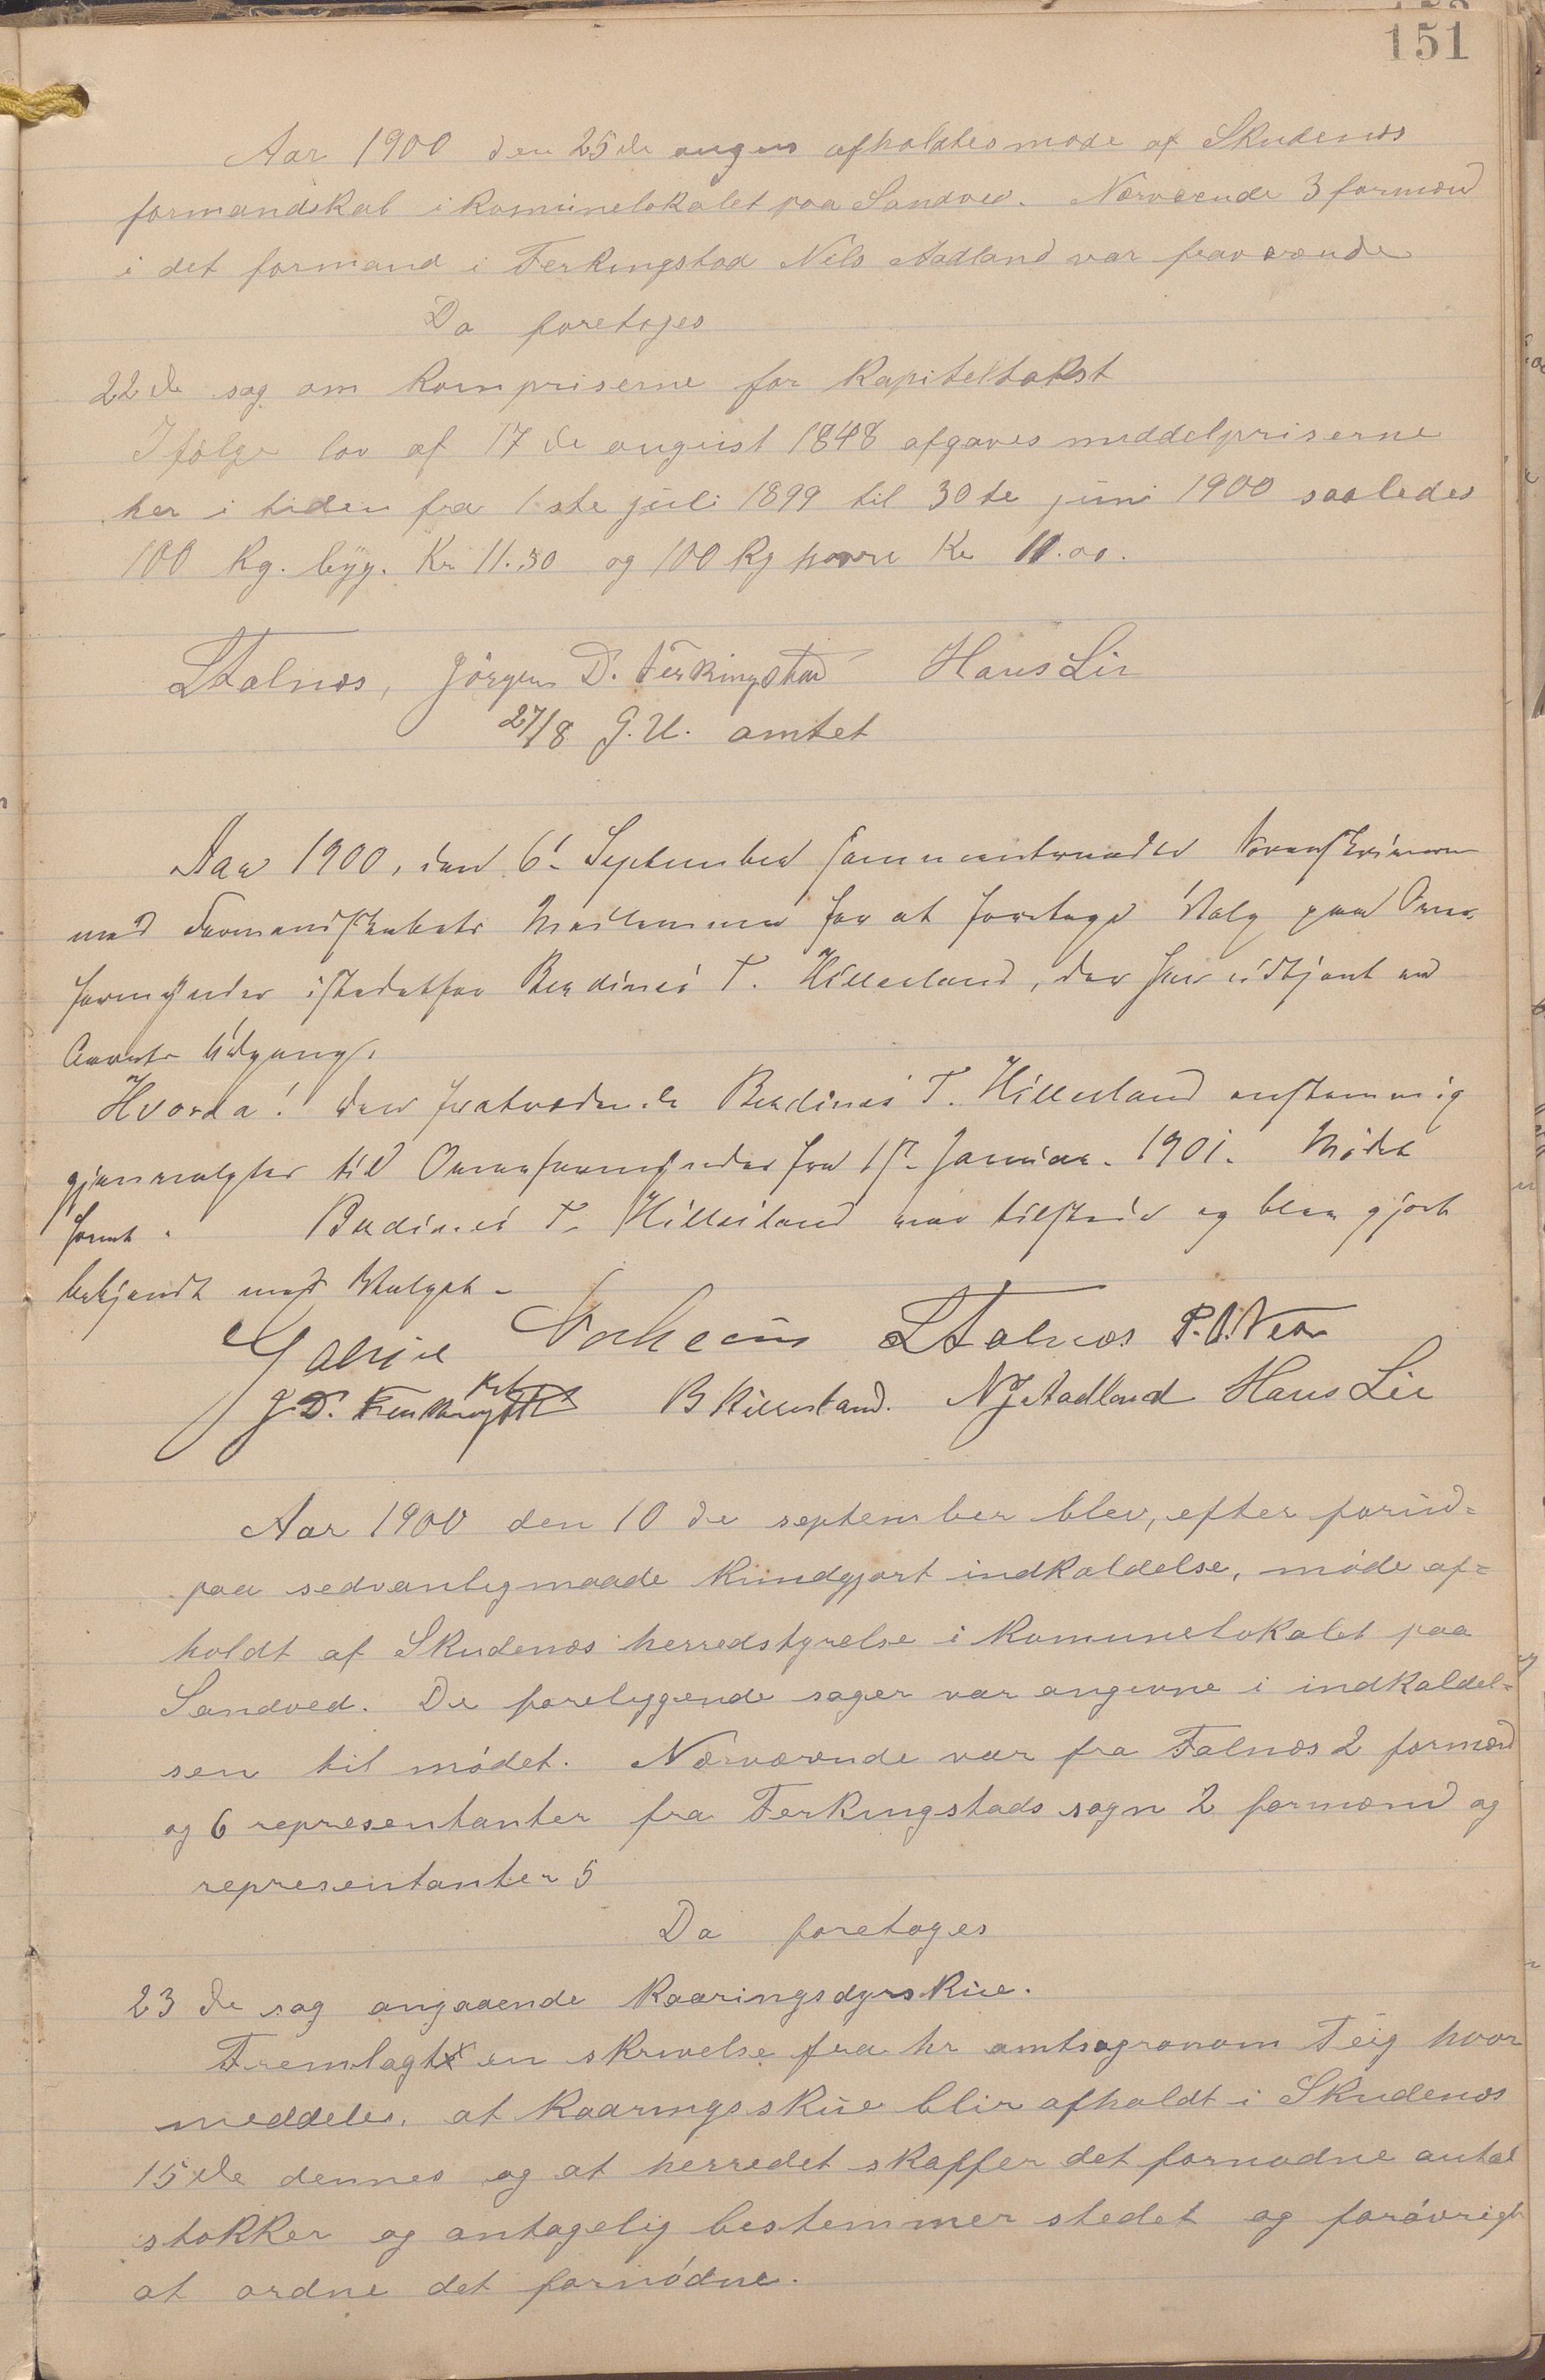 151
Aar 1900 den 25de augus afholdtes møde af Skudenæs
formandskab i komünelokalet paa Sandved. Nærværende 3 formænd
i det formand i Ferkingstad Nils Aadland var fraværende
Da foretages
22de sag om kornpriserne for Kapiteltakst
Ifølge lov af 17de august 1848 afgaves middelpriserne
her i tiden fra 1ste juli 1899 til 30te juni 1900 saaledes
100 kg. byg. Kr 11.30 og 100 kg havre Kr 11.00.
LFalnæs, Jørgen D. Ferkingstad Hans Lie
27/8 G.U. amtet
Aar 1900, den 6' September sammentraadte
med Formandskabets Medlemmer for at foretage Valg paa Over-
formynder istedetfor Berdines T. Hilleland, der har udtjent ved
Aarets Udgang.
Hvorda! den fratrædende Berdines T. Hilleland enstemmig
gjenvalgtes til Overformynder fra 1ste Januar 1901. Mødet
hævet. Berdines T. Hilleland var tilstede og blev gjort
bekjendt med Valget.
Gabriel LFalnæs
J. D. Ferkingstad B Hilleland. N J Aadland Hans Lie
Aar 1900 den 10de september blev, efter forüd=
paa sedvanlig maade kundgjort indkaldelse, møde af=
holdt af Skudenæs herredstyrelse i komunelokalet paa
Sandved. De foreliggende sager var angivne i indkaldel=
sen til mødet. Nærværende var fra Falnæs 2 formænd
og 6 representanter fra Ferkingstads sogn 2 formænd og
representanter 5
Da foretages
23de sag angaaende Kaaringsdyrskue.
Fremlagt en skrivelse fra hr amtsagronom Teig hvor
meddeles, at Kaaringsskue blir afholdt i Skudenæs
15de dennes og at herredet skaffer det fornødne antal
stokker og antagelig bestemmer stedet og forøvrigt
at ordne det fornødne.